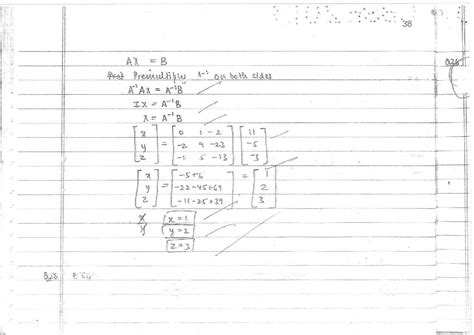 38
AX = B
Premultiply A⁻¹ on both sides
A⁻¹AX = A⁻¹B
IX = A⁻¹B
X = A⁻¹B
[x y z] = [0 1 -2; -2 9 -23; -1 5 -13] [11 -5 -3]
[x y z] = [-5+6; -22-45+69; -11-25+39] = [1 2 3]
x x=1
y y=2
z=3